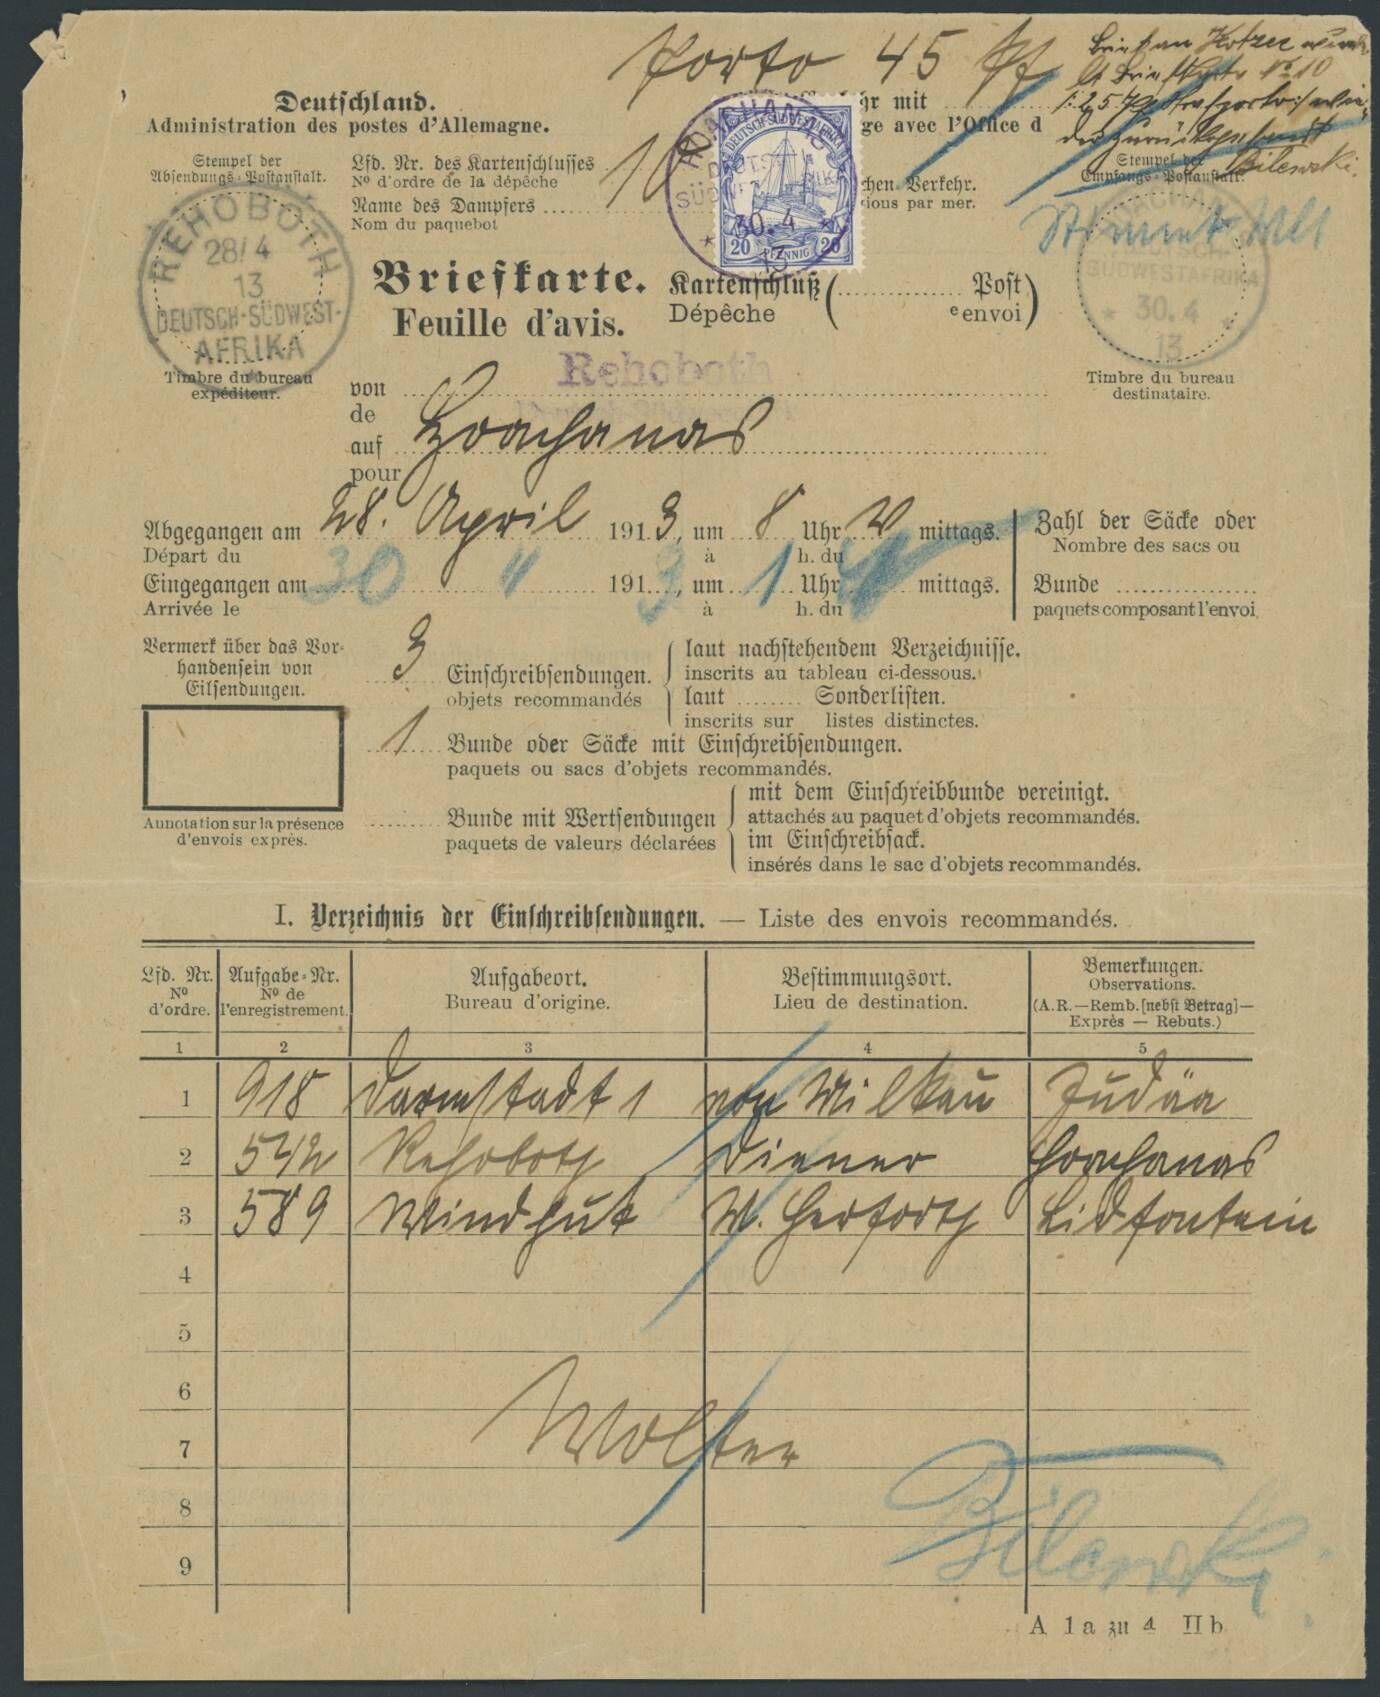 Porto 45 Pf
Brief an Kotzee wurde
lt Briefkarte No 10
der zurückgesandt
Bilewski.
Deutschland.
Administration des postes d'Allemagne.
hr mit
ge avec l'Office d
Stempel der
Absendungs-Postanstalt.
Lfd. Nr. des Kartenschlusses
No d'ordre de la dépêche
10
Name des Dampfers
Nom du paquebot
chen Verkehr.
ious par mer.
Stempel der
Empfangs-Postanstalt.
HOACHANAS
DEUTSCH-
SÜDWESTAFRIKA
30.4
13
DEUTSCH-SÜDWESTAFRIKA
20 PFENNIG 20
REHOBOTH
28/4
13
DEUTSCH-SÜDWEST-
AFRIKA
Stimmt
HOACHANAS
DEUTSCH-
SÜDWESTAFRIKA
30.4
13
Briefkarte.
Feuille d'avis.
Kartenschluß
Dépêche
( Post
e envoi )
Timbre du bureau
expéditeur.
Timbre du bureau
destinataire.
von Rehoboth
de
auf Hoachanas
pour
Abgegangen am 28. April 1913, um 8 Uhr V mittags.
Départ du à h. du
Eingegangen am 30 " 1913, um 1 Uhr N mittags.
Arrivée le à h. du
Zahl der Säcke oder
Nombre des sacs ou
Bunde
paquets composant l'envoi
Vermerk über das Vor-
handensein von
Eilsendungen.
Annotation sur la présence
d'envois exprès.
3 Einschreibsendungen.
objets recommandés
laut nachstehendem Verzeichnisse.
inscrits au tableau ci-dessous.
laut Sonderlisten.
inscrits sur listes distinctes.
1 Bunde oder Säcke mit Einschreibsendungen.
paquets ou sacs d'objets recommandés.
Bunde mit Wertsendungen
paquets de valeurs déclarées
mit dem Einschreibbunde vereinigt.
attachés au paquet d'objets recommandés.
im Einschreibsack.
insérés dans le sac d'objets recommandés.
I. Verzeichnis der Einschreibsendungen. — Liste des envois recommandés.
Lfd. Nr.
No
d'ordre.
Aufgabe-Nr.
No de
l'enregistrement.
Aufgabeort.
Bureau d'origine.
Bestimmungsort.
Lieu de destination.
Bemerkungen.
Observations.
(A.R.—Remb. [nebst Betrag]—
Exprès — Rebuts.)
1 2 3 4 5
1 918 Darmstadt 1 von Milkau Judäa
2 542 Rehoboth Diener Hoachanas
3 589 Windhuk W. Herforth Lidfontein
4
5
6
7
8
9
Wolter
Bilewski
A 1 a zu 4 II b